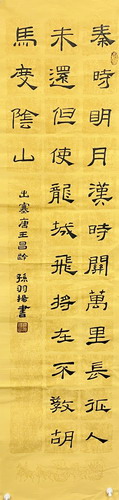 秦時明月漢時關萬里長征人
未還但使龍城飛將在不敎胡
馬度陰山
出塞唐王昌齡 孫羽揚書